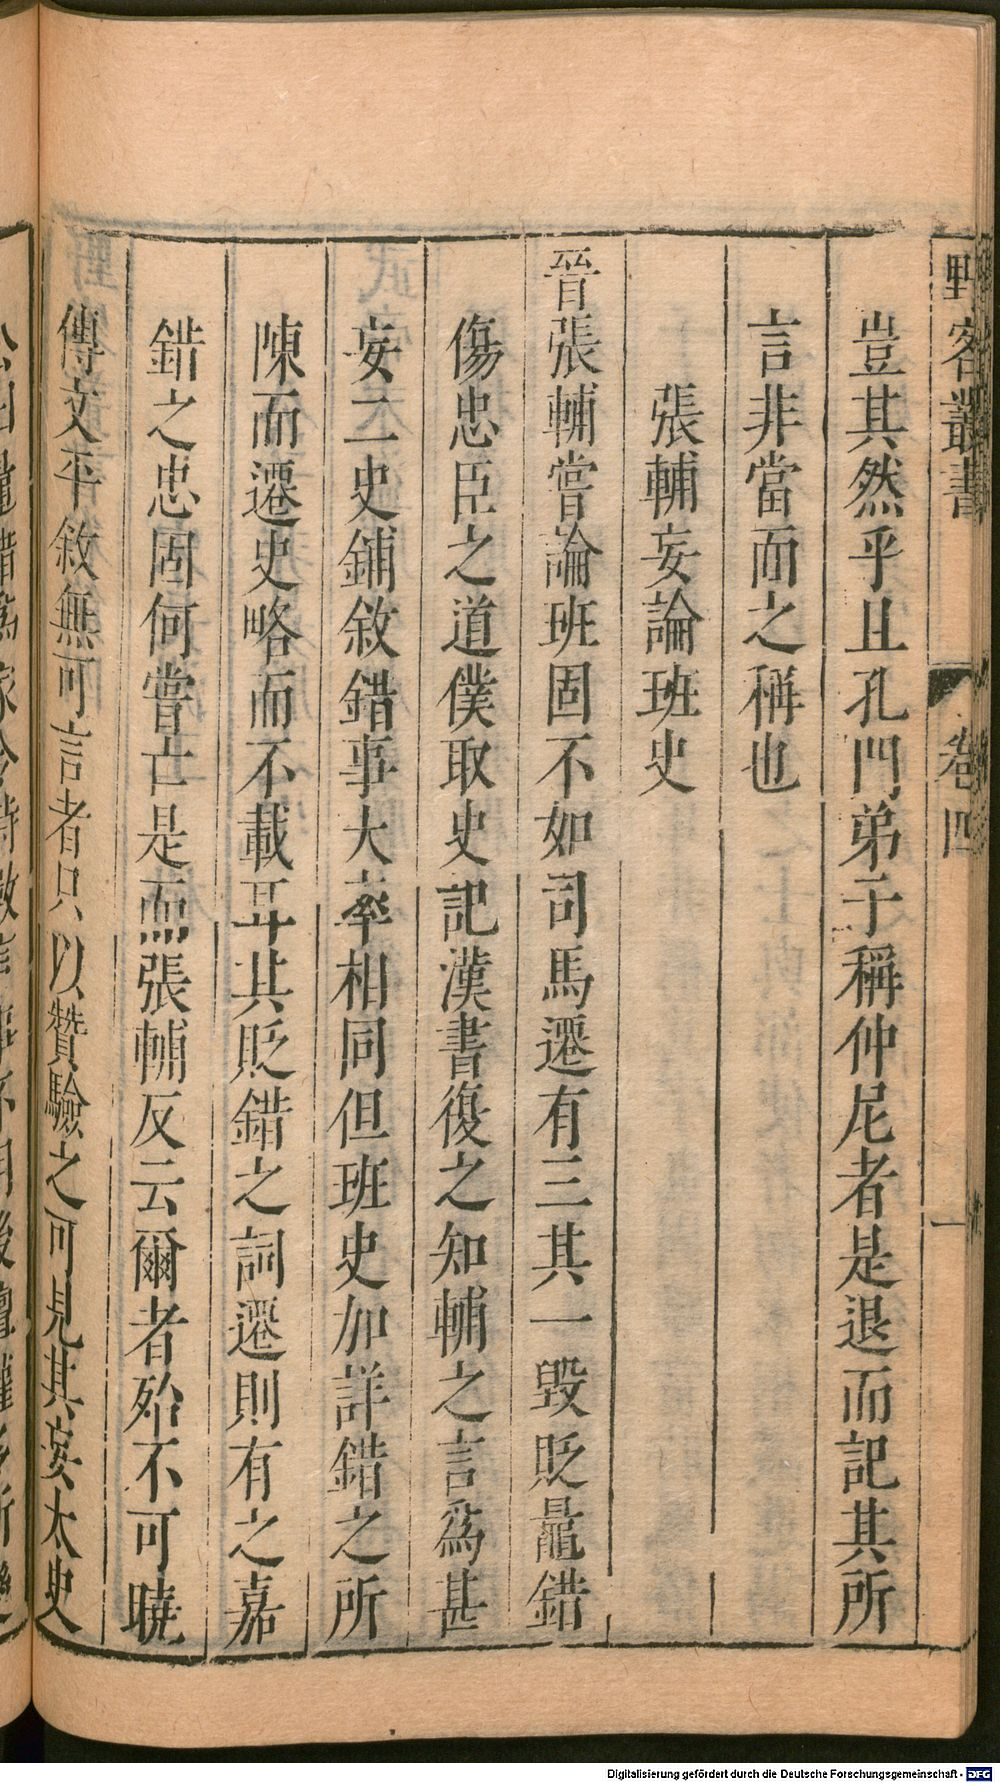 野客叢書 卷四 一
豈其然乎且孔門弟子稱仲尼者是退而記其所
言非當面之稱也
張輔妄論班史
晉張輔嘗論班固不如司馬遷有三其一毀貶鼂錯
傷忠臣之道僕取史記漢書復之知輔之言為甚
妄二史鋪敘錯事大率相同但班史加詳錯之所
陳而遷史略而不載耳其貶錯之詞遷則有之嘉
錯之忠固何嘗亡是而張輔反云爾者殆不可曉
傳文平敘無可言者只以贊驗之可見其妄太史
Digitalisierung gefördert durch die Deutsche Forschungsgemeinschaft - DFG